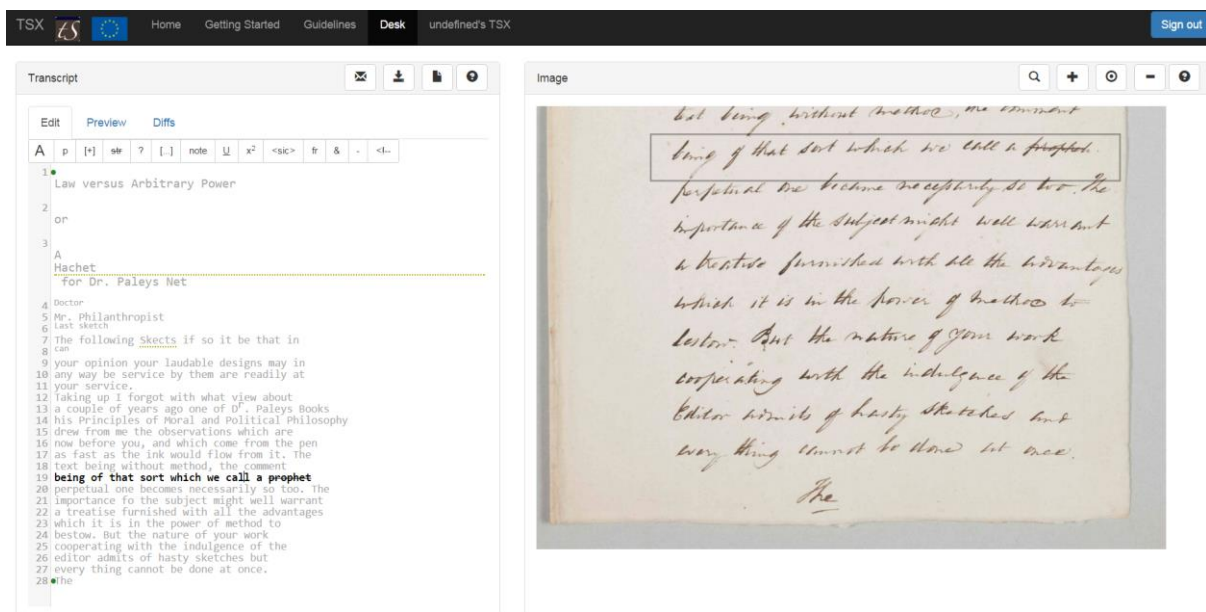 TSX tS Home Getting Started Guidelines Desk undefined's TSX Sign out
Transcript
Edit Preview Diffs
A p [+] str ? [...] note U x² <sic> fr & - <!--
1
Law versus Arbitrary Power
2
or
3
A
Hachet
for Dr. Paleys Net
4 Doctor
5 Mr. Philanthropist
6 Last sketch
7 The following Skects if so it be that in
8 can
9 your opinion your laudable designs may in
10 any way be service by them are readily at
11 your service.
12 Taking up I forgot with what view about
13 a couple of years ago one of Dr. Paleys Books
14 his Principles of Moral and Political Philosophy
15 drew from me the observations which are
16 now before you, and which come from the pen
17 as fast as the ink would flow from it. The
18 text being without method, the comment
19 being of that sort which we call a prophet
20 perpetual one becomes necessarily so too. The
21 importance fo the subject might well warrant
22 a treatise furnished with all the advantages
23 which it is in the power of method to
24 bestow. But the nature of your work
25 cooperating with the indulgence of the
26 editor admits of hasty sketches but
27 every thing cannot be done at once.
28 The
Image
text being without method, the comment
being of that sort which we call a
perpetual one became necessarily so too. The
importance of the subject might well warrant
a treatise furnished with all the advantages
which it is in the power of method to
bestow. But the nature of your work
cooperating with the indulgence of the
Editor admits of hasty sketches and
every thing cannot be done at once.
The